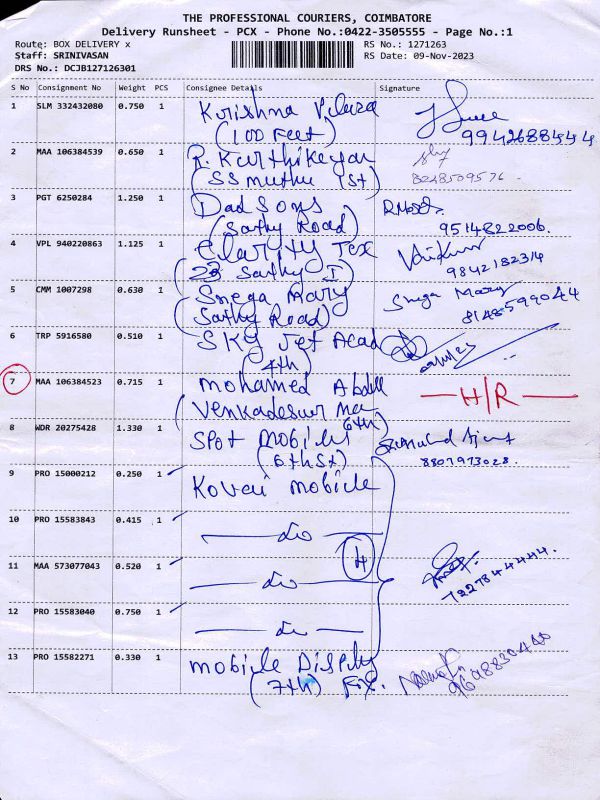 THE PROFESSIONAL COURIERS, COIMBATORE
Delivery Runsheet - PCX - Phone No.:0422-3505555 - Page No.:1
Route: BOX DELIVERY x RS No.: 1271263
Staff: SRINIVASAN RS Date: 09-Nov-2023
DRS No.: DCJB127126301
S No Consignment No Weight PCS Consignee Details Signature
1 SLM 332432080 0.750 1 Krishna
(100 Feet) 9942688444
2 MAA 106384539 0.650 1 R. Karthikeyan
(SS muthu St) 8248509576
3 PGT 6250284 1.250 1 Dad Sons
(Sathy Road) 9514822006.
4 VPL 940220863 1.125 1 Clarity Tex
Sathy 9842182314
5 CMM 1007298 0.630 1 Snega Mary Snega Mary
(Sathy Road) 8148599044
6 TRP 5916580 0.510 1 Sky Jet Acad
(4th)
7 MAA 106384523 0.715 1 Mohamed Abdul H/R
(Venkadesur Na 6th)
8 WDR 20275428 1.330 1 Spot Mobiles
(6th St) 8807973028.
9 PRO 15000212 0.250 1 Kovai mobile
10 PRO 15583843 0.415 1 do
H
11 MAA 573077043 0.520 1 do 7227844444.
12 PRO 15583040 0.750 1 do
13 PRO 15582271 0.330 1 mobile Disply
(7th) Fix. 9698830400